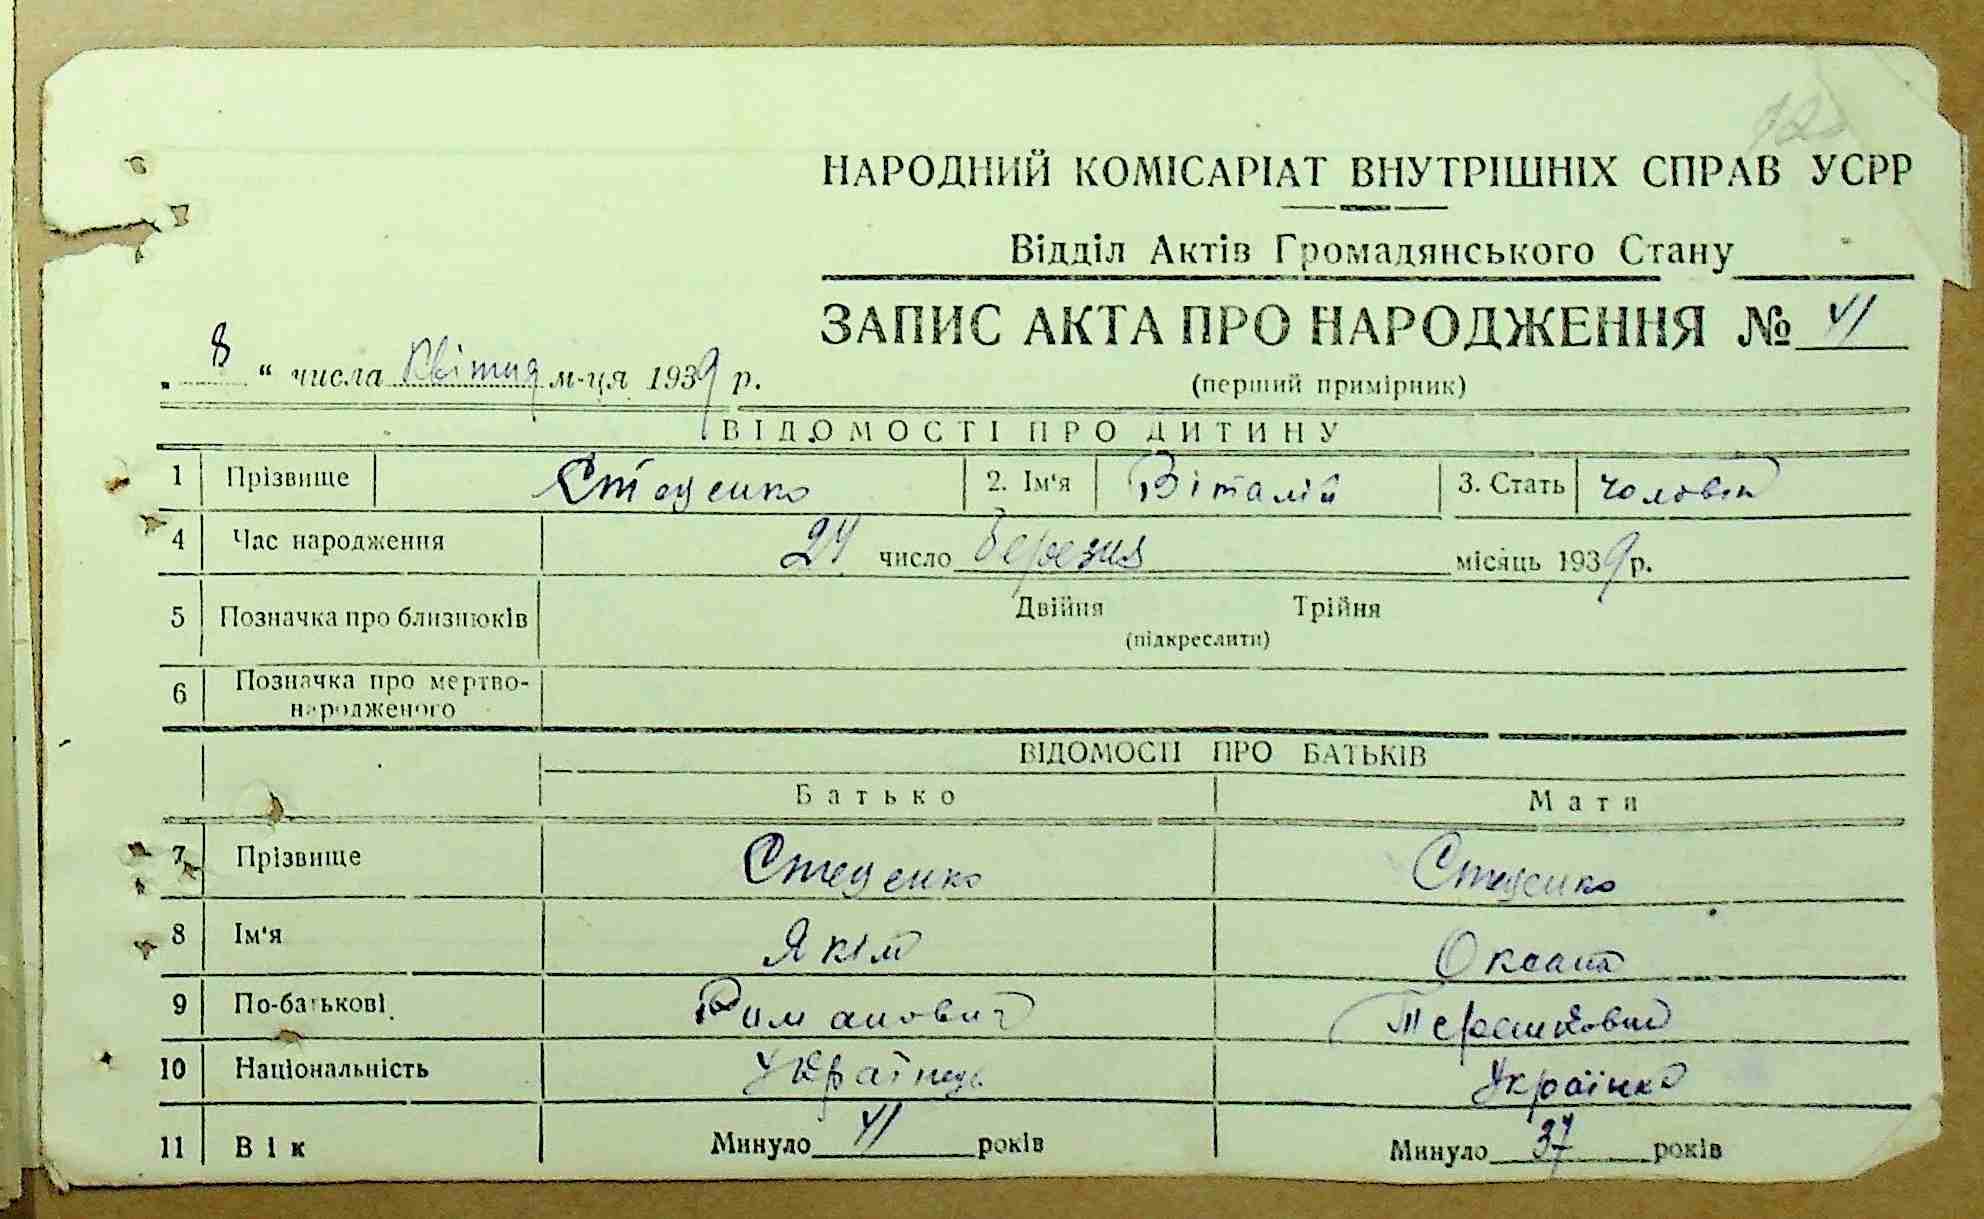 НАРОДНИЙ КОМІСАРІАТ ВНУТРІШНІХ СПРАВ УСРР
Відділ Актів Громадянського Стану
ЗАПИС АКТА ПРО НАРОДЖЕННЯ № 41
„ 8 “ числа Квітня м-ця 1939 р.
(перший примірник)
ВІДОМОСТІ ПРО ДИТИНУ
1 Прізвище Стеценко 2. Ім'я Віталій 3. Стать чоловіч
4 Час народження 24 число березня місяць 1939 р.
5 Позначка про близнюків Двійня Трійня
(підкреслити)
6 Позначка про мертво-
народженого
ВІДОМОСТІ ПРО БАТЬКІВ
Батько Мати
7 Прізвище Стеценко Стеценко
8 Ім'я Якім Оксана
9 По-батькові
10 Національність Українець Українка
11 Вік Минуло 41 років Минуло 37 років